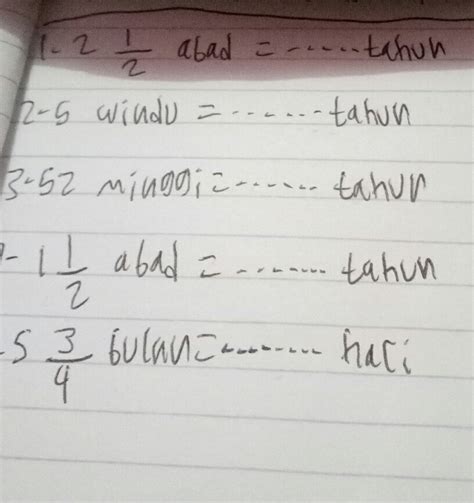 1- 2 1/2 abad = ...... tahun
2-5 windu = ....... tahun
3-52 minggi = ....... tahun
- 1 1/2 abad = ....... tahun
- 5 3/4 bulan = ......... hari